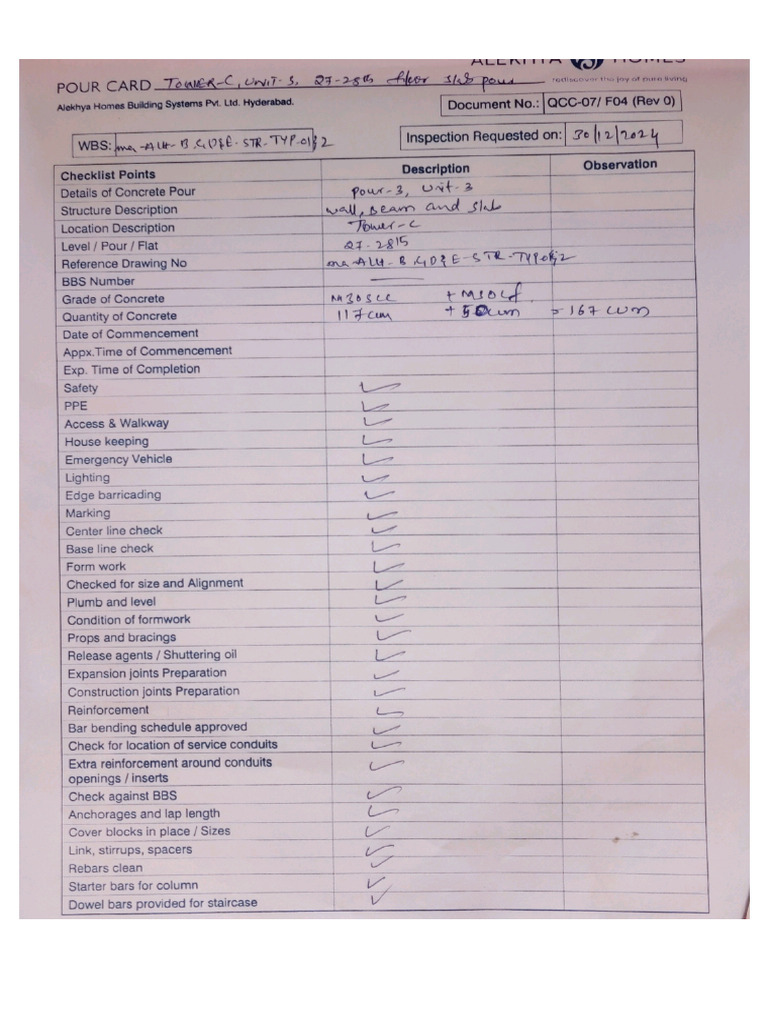 ALEKHYA HOMES
rediscover the joy of pure living
POUR CARD Tower-C, Unit-3, 27-28th floor slab pour
Alekhya Homes Building Systems Pvt. Ltd. Hyderabad.
Document No.: QCC-07/ F04 (Rev 0)
WBS: ALH-B, STR-TYP-01&2
Inspection Requested on: 30/12/2024
Checklist Points Description Observation
Details of Concrete Pour Pour-3, Unit-3
Structure Description wall, Beam and Slab
Location Description Tower-C
Level / Pour / Flat 27-28th
Reference Drawing No ALH-B, STR-TYP
BBS Number —
Grade of Concrete M30SCC +
Quantity of Concrete 117cum + 50cum = 167 cum
Date of Commencement
Appx.Time of Commencement
Exp. Time of Completion
Safety ✓
PPE ✓
Access & Walkway ✓
House keeping ✓
Emergency Vehicle ✓
Lighting ✓
Edge barricading ✓
Marking ✓
Center line check ✓
Base line check ✓
Form work ✓
Checked for size and Alignment ✓
Plumb and level ✓
Condition of formwork ✓
Props and bracings ✓
Release agents / Shuttering oil ✓
Expansion joints Preparation ✓
Construction joints Preparation ✓
Reinforcement ✓
Bar bending schedule approved ✓
Check for location of service conduits ✓
Extra reinforcement around conduits ✓
openings / inserts
Check against BBS ✓
Anchorages and lap length ✓
Cover blocks in place / Sizes ✓
Link, stirrups, spacers ✓
Rebars clean ✓
Starter bars for column ✓
Dowel bars provided for staircase ✓